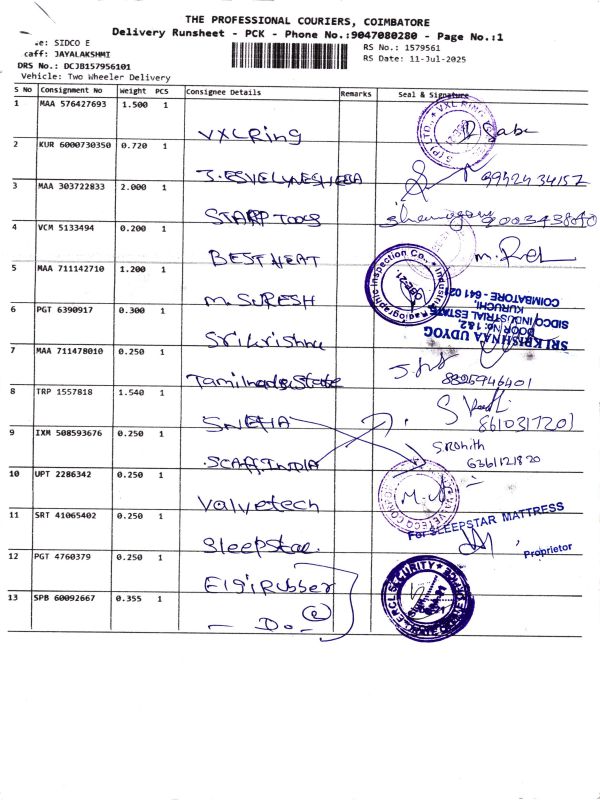 THE PROFESSIONAL COURIERS, COIMBATORE
Delivery Runsheet - PCK - Phone No.:9047080280 - Page No.:1
e: SIDCO E
RS No.: 1579561
caff: JAYALAKSHMI
RS Date: 11-Jul-2025
DRS No.: DCJB157956101
Vehicle: Two Wheeler Delivery
S No Consignment No Weight PCS Consignee Details Remarks Seal & Signature
1 MAA 576427693 1.500 1
VXL Ring
2 KUR 6000730350 0.720 1
9942434157
3 MAA 303722833 2.000 1
STARR Tools
4 VCM 5133494 0.200 1
BEST HEAT
5 MAA 711142710 1.200 1
M. SURESH
Industrial Radiographic Inspection Co.,
SRI KRISHNAA UDYOG
DOOR No: 1&2,
SIDCO INDUSTRIAL ESTATE
KURUCHI,
COIMBATORE - 641 021
6 PGT 6390917 0.300 1
Srikrishna
7 MAA 711478010 0.250 1
Tamilnadu State
8825946401
8 TRP 1557818 1.540 1
SNEHA
8610317201
9 IXM 508593676 0.250 1
SCAFF INDIA
S.Rohith
6361121820
10 UPT 2286342 0.250 1
Valvetech
11 SRT 41065402 0.250 1
Sleepstar
For SLEEPSTAR MATTRESS
Proprietor
12 PGT 4760379 0.250 1
Elgi Rubber
SECURITY
13 SPB 60092667 0.355 1
- Do -